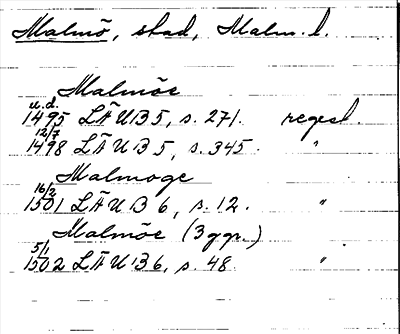 Malmö, stad, Malm. l.
Malmöe
u.d.
1495 LÄUB 5, s. 271. regest.
12/7
1498 LÄUB 5, s. 345. "
Malmoge
16/2
1501 LÄUB 6, s. 12. "
Malmöe (3 ggr.)
5/1
1502 LÄUB 6, s. 48. "